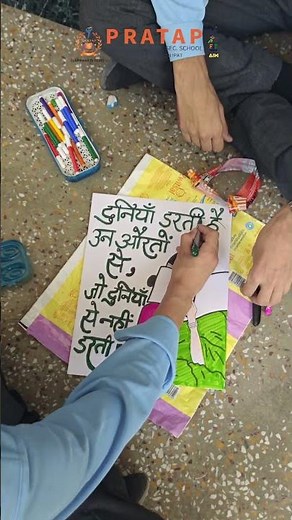 PRATAP
SR. SEC. SCHOOL
दुनियाँ डरती है
उन औरतों
से,
जो दुनियाँ
से नहीं
डरती